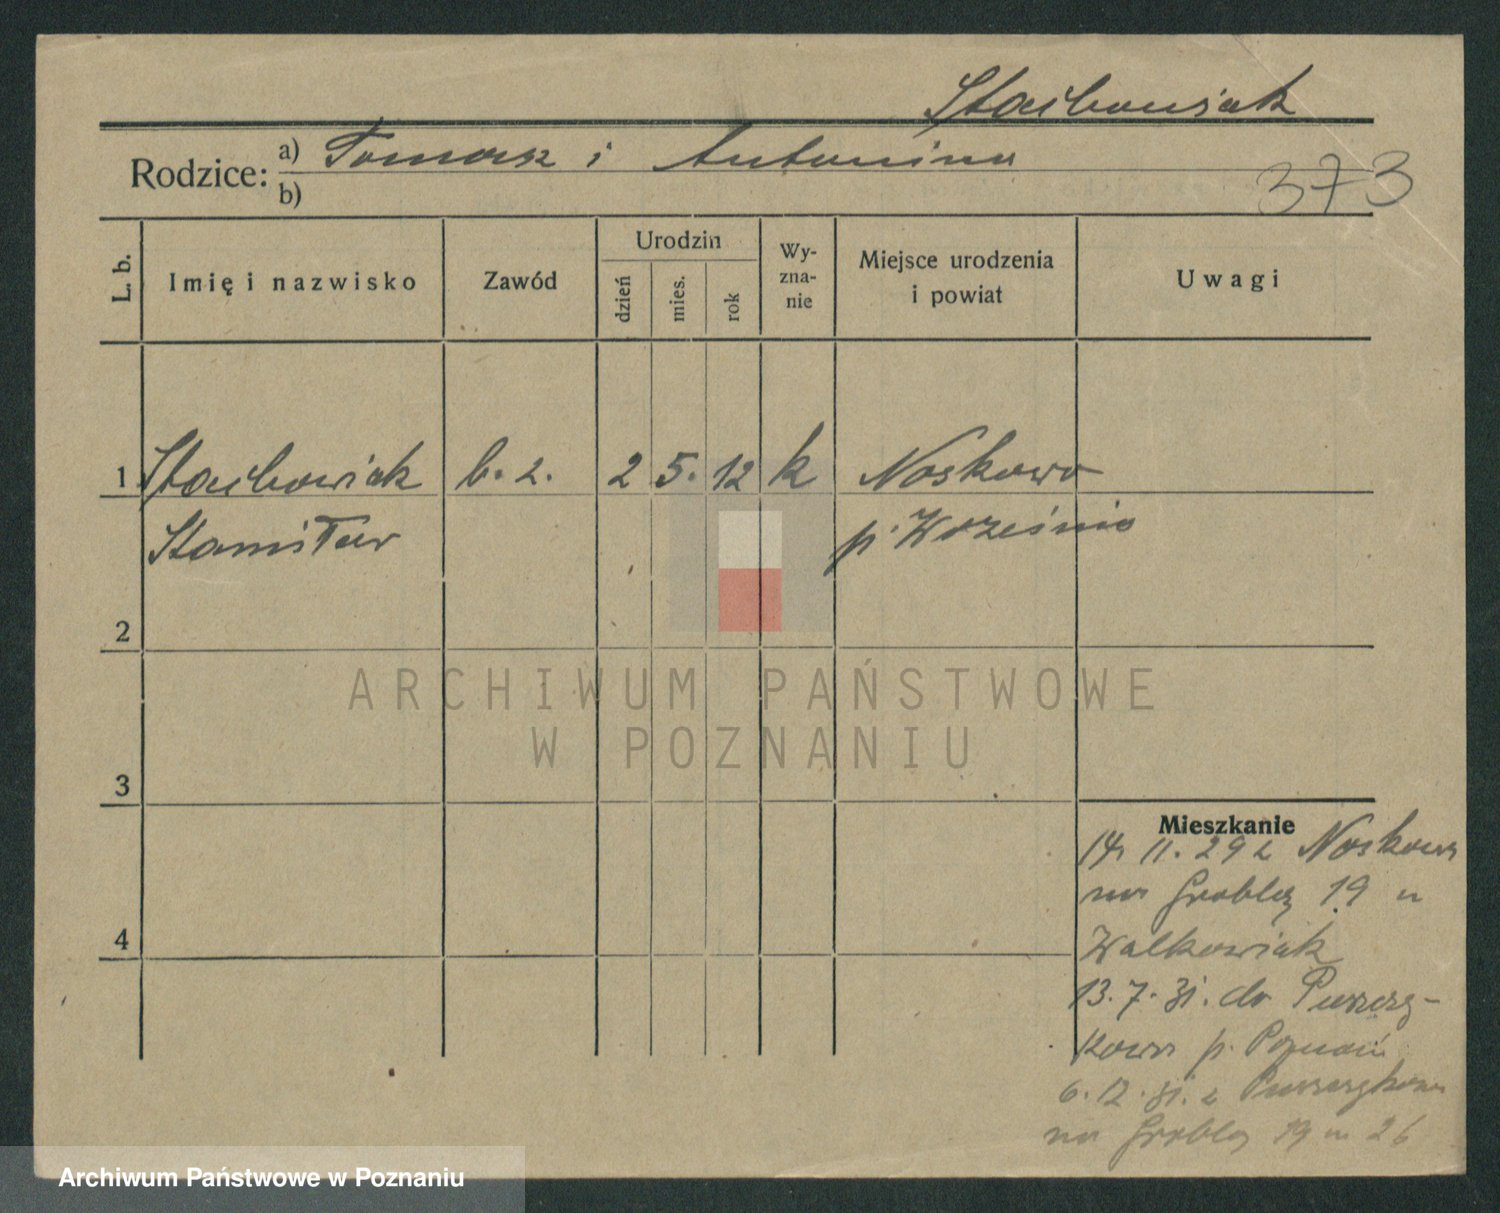 Stachowiak
Rodzice: a) Tomasz i Antonina
b)
373
L. b.
Imię i nazwisko
Zawód
Urodzin
dzień
mies.
rok
Wy-
zna-
nie
Miejsce urodzenia
i powiat
Uwagi
1 Stachowiak b. z. 2 5. 12 k Noskowo
Stanisław p. Września
2
ARCHIWUM PAŃSTWOWE
W POZNANIU
3
Mieszkanie
14. 11. 29 z Noskowa
na Groblę 19 u
Walkowiak
13. 7. 31. do Puszczy-
kowa p. Poznań
4
6. 12. 31. z Puszczykowa
na Groblę 19 m 26
Archiwum Państwowe w Poznaniu